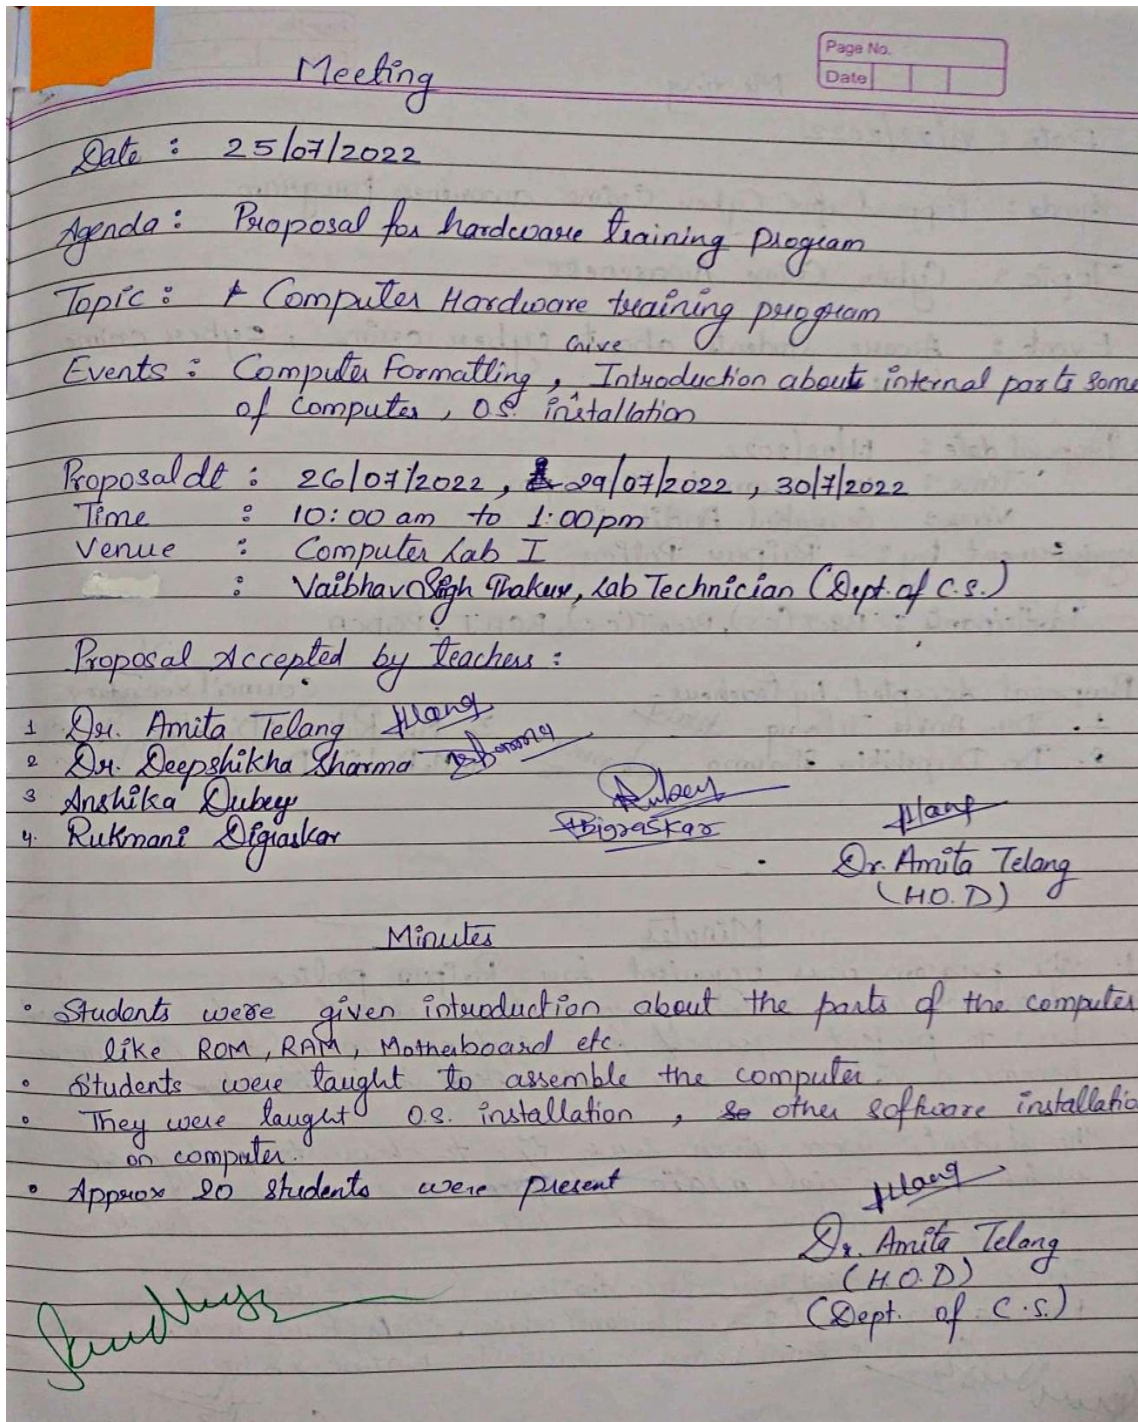 Page No.
Date
Meeting
Date : 25/07/2022
Agenda : Proposal for hardware training program
Topic : Computer Hardware training program
Give
Events : Computer Formatting , Introduction about internal parts some
of computer , O.S. installation
Proposal dt : 26/07/2022 , 29/07/2022 , 30/7/2022
Time : 10:00 am to 1:00pm
Venue : Computer Lab I
: Vaibhav Sigh Thakur, Lab Technician (Dept. of C.S.)
Proposal Accepted by teachers :
1 Dr. Amita Telang
2 Dr. Deepshikha Sharma
3 Anshika Dubey Dubey
4. Rukmani Digraskar Digraskar
Dr. Amita Telang
(H.O.D)
Minutes
• Students were given introduction about the parts of the computer
like ROM , RAM , Motherboard etc.
• Students were taught to assemble the computer.
• They were taught O.S. installation , other software installatio
on computer.
• Approx 20 students were present
Dr. Amita Telang
(H.O.D)
(Dept. of C.S.)